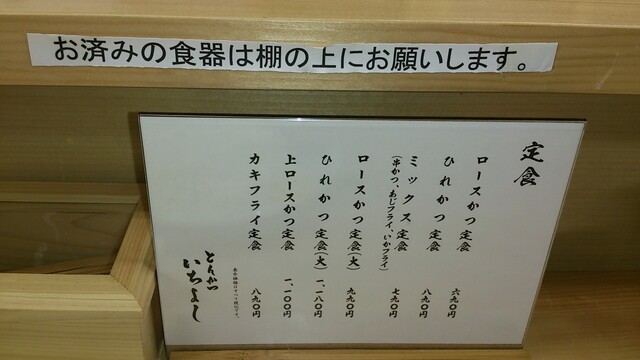 お済みの食器は棚の上にお願いします。
定食
ロースかつ定食 六九〇円
ひれかつ定食 八九〇円
ミックス定食 七九〇円
(串かつ、あじフライ、いかフライ)
ロースかつ定食(大) 九九〇円
ひれかつ定食(大) 一、一八〇円
上ロースかつ定食 一、一〇〇円
カキフライ定食 八九〇円
とんかつ
いちよし